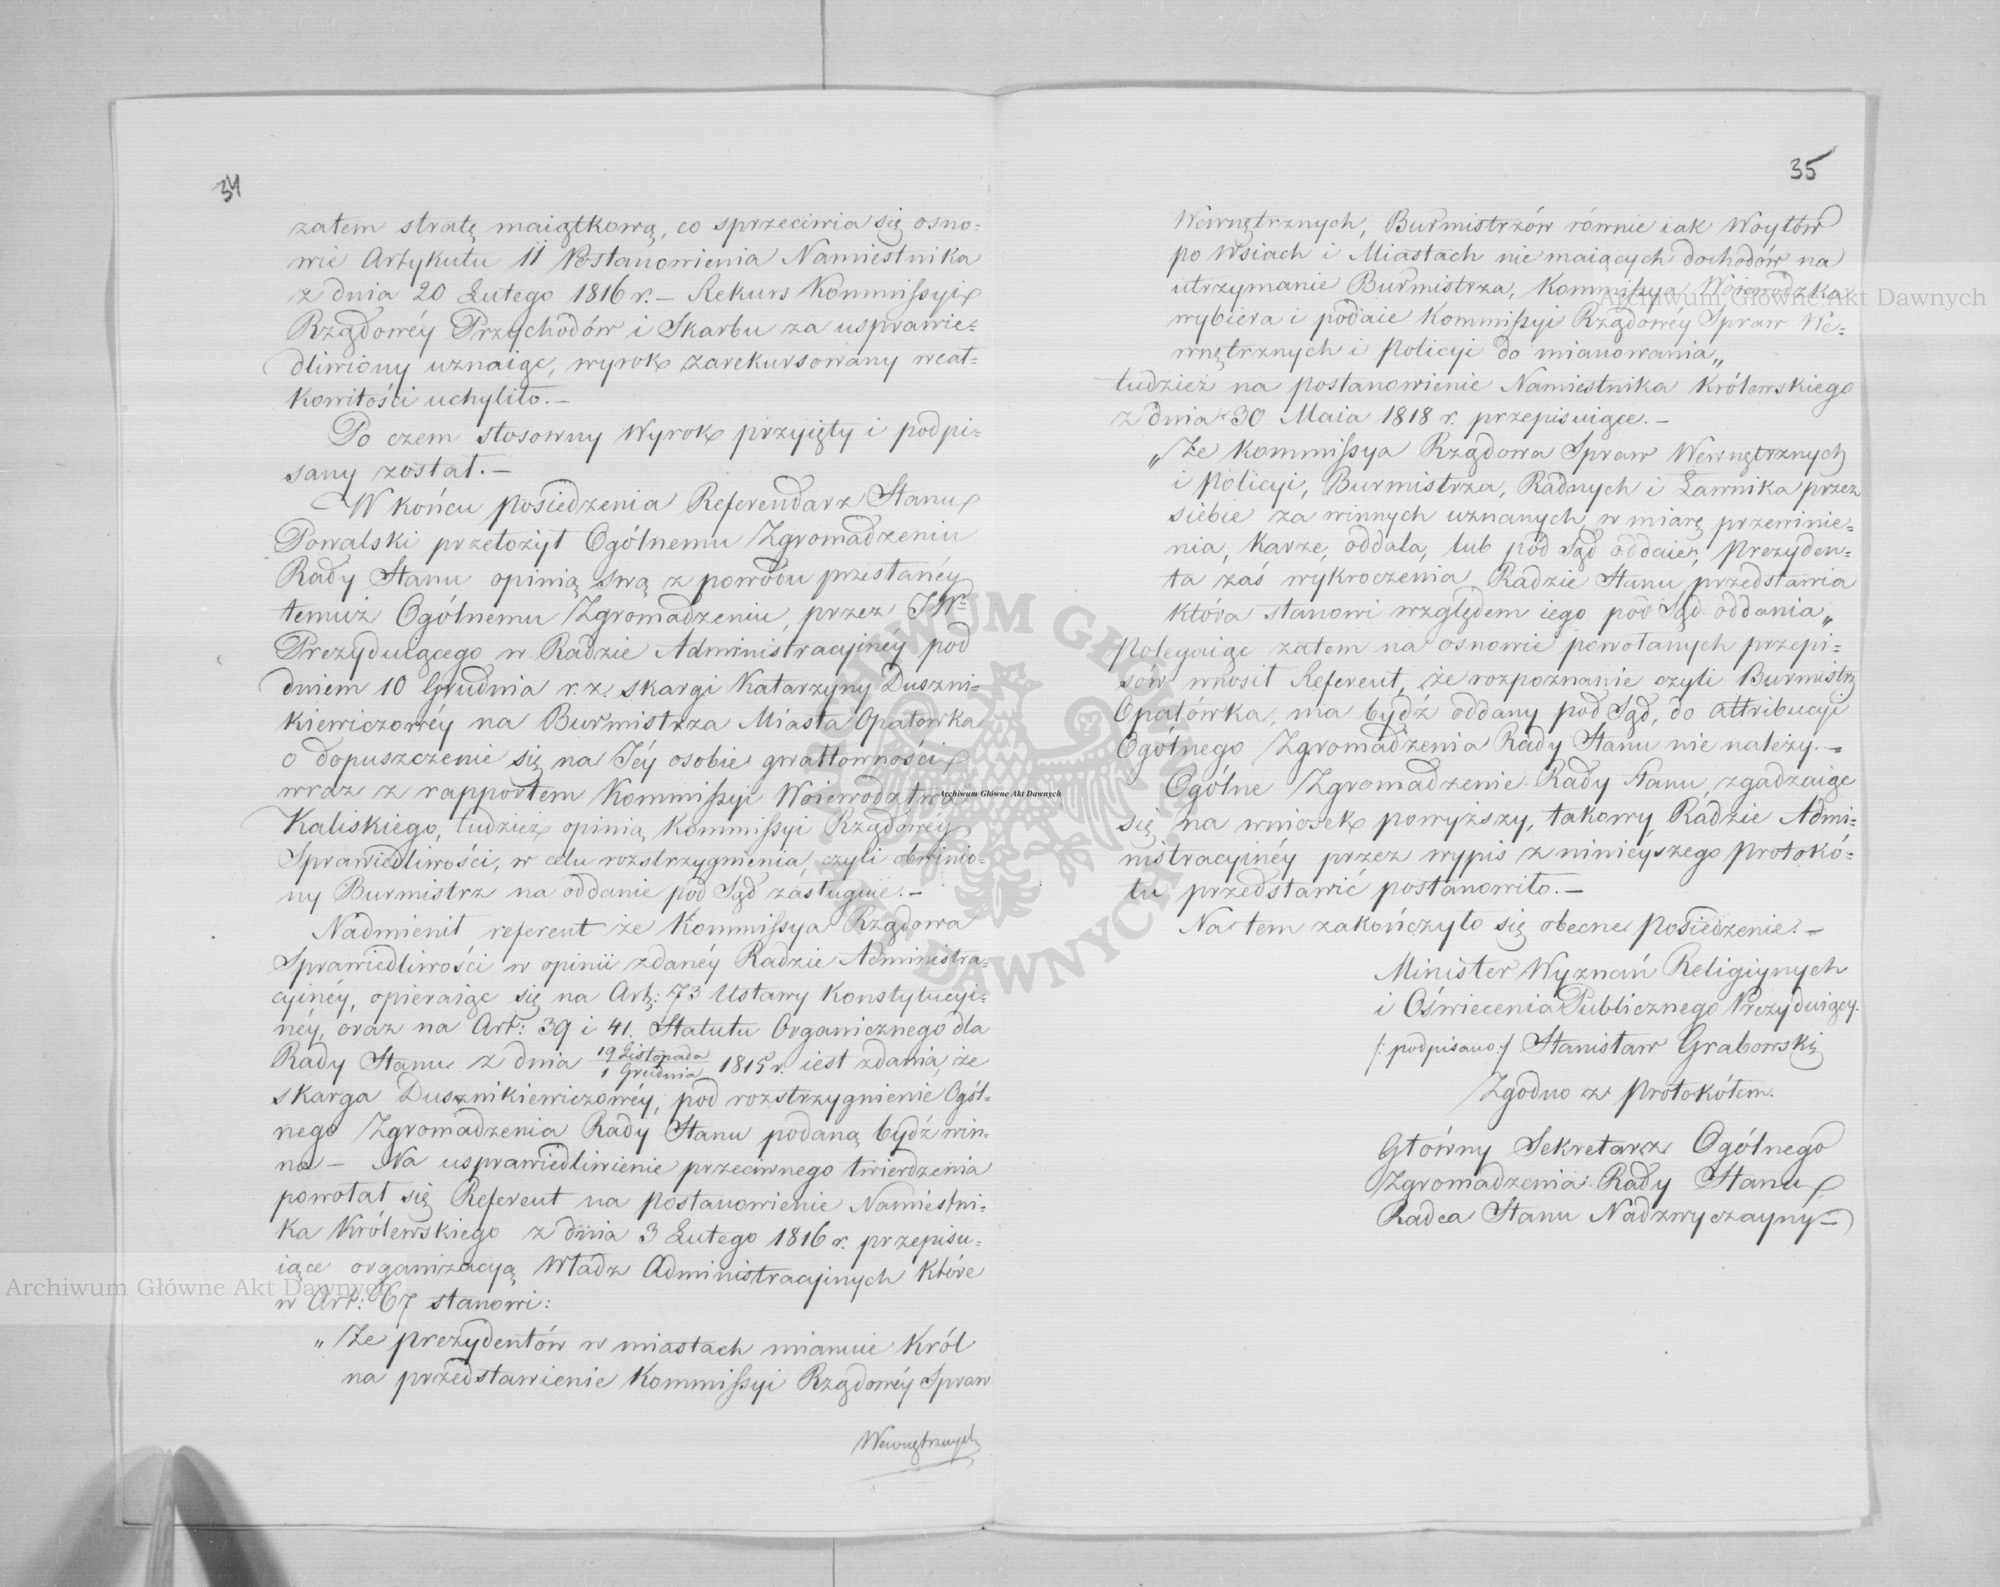 34
zatem stratę maiątkową, co sprzeciwia się osno-
wie Artykułu 11 Postanowienia Namiestnika
z dnia 20 Lutego 1816 r. — Rekurs Kommissyi
Rządowéy Przychodów i Skarbu za usprawie-
dliwiony uznaiąc, wyrok zarekursowany wcał-
kowitości uchyliło. —
Po czem stosowny Wyrok przyięty i podpi-
sany został. —
W końcu posiedzenia Referendarz Stanu
Powalski przełożył Ogólnemu Zgromadzeniu
Rady Stanu opinią swą z powodu przesłanéy
temuż Ogólnemu Zgromadzeniu, przez JW.
Prezyduiącego w Radzie Administracyinéy pod
dniem 10 Grudnia r. z. skargi Katarzyny Duszni-
kiewiczowéy na Burmistrza Miasta Opatowka
o dopuszczenie się na Jéy osobie gwałtowności
wraz z rapportem Kommissyi Woiewództwa
Kaliskiego, tudzież opinią Kommissyi Rządowéy
Sprawiedliwości, w celu rozstrzygnienia, czyli obwinio-
ny Burmistrz na oddanie pod Sąd zasługuie. —
Nadmienił referent że Kommissya Rządowa
Sprawiedliwości w opinii zdanéy Radzie Administra-
cyinéy, opieraiąc się na Art: 73 Ustawy Konstytucyi-
néy, oraz na Art: 39 i 41. Statutu Organicznego dla
Rady Stanu z dnia 19 Listopada / 1 Grudnia 1815 r. iest zdania, że
skarga Dusznikiewiczowéy, pod rozstrzygnienie Ogól-
nego Zgromadzenia Rady Stanu podaną bydź win-
na — Na usprawiedliwienie przeciwnego twierdzenia
powołał się Referent na postanowienie Namiestni-
ka Królewskiego z dnia 3 Lutego 1816 r. przepisu-
iące organizacyą Władz Administracyinych które
w Art: 67 stanowi:
„ Że prezydentów w miastach mianuie Król
na przedstawienie Kommissyi Rządowéy Spraw
Wewnętrznych
35
Wewnętrznych, Burmistrzów równie iak Woytów
po Wsiach i Miastach nie maiących dochodów na
utrzymanie Burmistrza, Kommissya Woiewódzka
wybiera i podaie Kommissyi Rządowéy Spraw We-
wnętrznych i Policyi do mianowania„
tudzież na postanowienie Namiestnika Królewskiego
z dnia 30 Maia 1818 r. przepisuiące. —
„Że Kommissya Rządowa Spraw Wewnętrznych
i Policyi, Burmistrza, Radnych i Ławnika przez
siebie za winnych uznanych, w miarę przewinie-
nia, karze, oddala, lub pod Sąd oddaie, Prezyden-
ta zaś wykroczenia Radzie Stanu przedstawia
która stanowi względem iego pod Sąd oddania„
Polegaiąc zatem na osnowie powołanych przepi-
sów wnosił Referent, że rozpoznanie czyli Burmistrz
Opatówka, ma bydź oddany pod Sąd, do attribucyi
Ogólnego Zgromadzenia Rady Stanu nie należy. —
Ogólne Zgromadzenie Rady Stanu, zgadzaiąc
się na wniosek powyższy, takowy Radzie Admi-
nistracyinéy przez wypis z ninieyszego Protokó-
łu przedstawić postanowiło. —
Na tem zakończyło się obecne posiedzenie. —
Minister Wyznań Religiynych
i Oświecenia Publicznego Prezyduiący.
/:podpisano:/ Stanisław Grabowski
Zgodno z Protokółem.
Główny Sekretarz Ogólnego
Zgromadzenia Rady Stanu
Radca Stanu Nadzwyczayny —
Archiwum Główne Akt Dawnych
Archiwum Główne Akt Dawnych
Archiwum Główne Akt Dawnych
ARCHIWUM GŁÓWNE AKT DAWNYCH